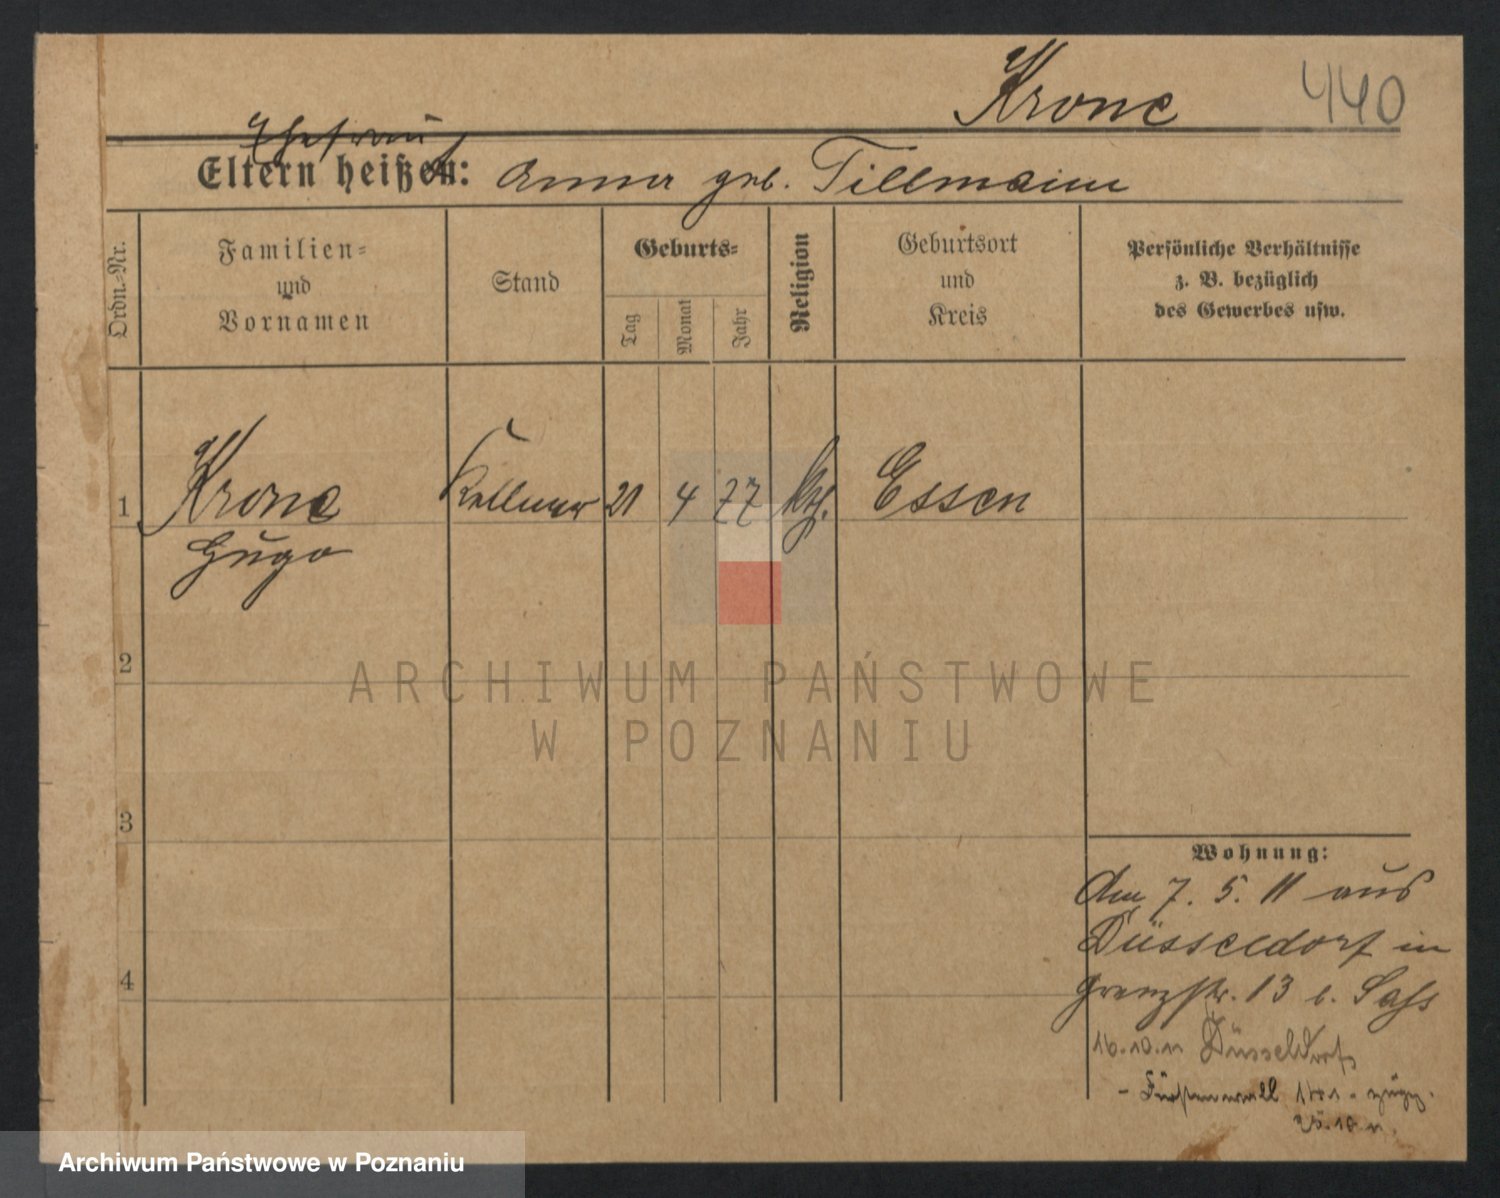 Krone 440
Ehefrau
Eltern heißen: Anna geb. Tillmann
Ordn.-Nr.
Familien-
und
Vornamen
Stand
Geburts-
Tag
Monat
Jahr
Religion
Geburtsort
und
Kreis
Persönliche Verhältnisse
z. B. bezüglich
des Gewerbes usw.
1 Krone Kellner 21 4 77 Essen
Hugo
2
3
4
Wohnung:
Am 7. 5. 11 aus
Düsseldorf in
Grenzstr. 13 b. Sass
16.10.11 Düsseldorf
- Fürstenwall
25.10.11.
ARCHIWUM PAŃSTWOWE
W POZNANIU
Archiwum Państwowe w Poznaniu